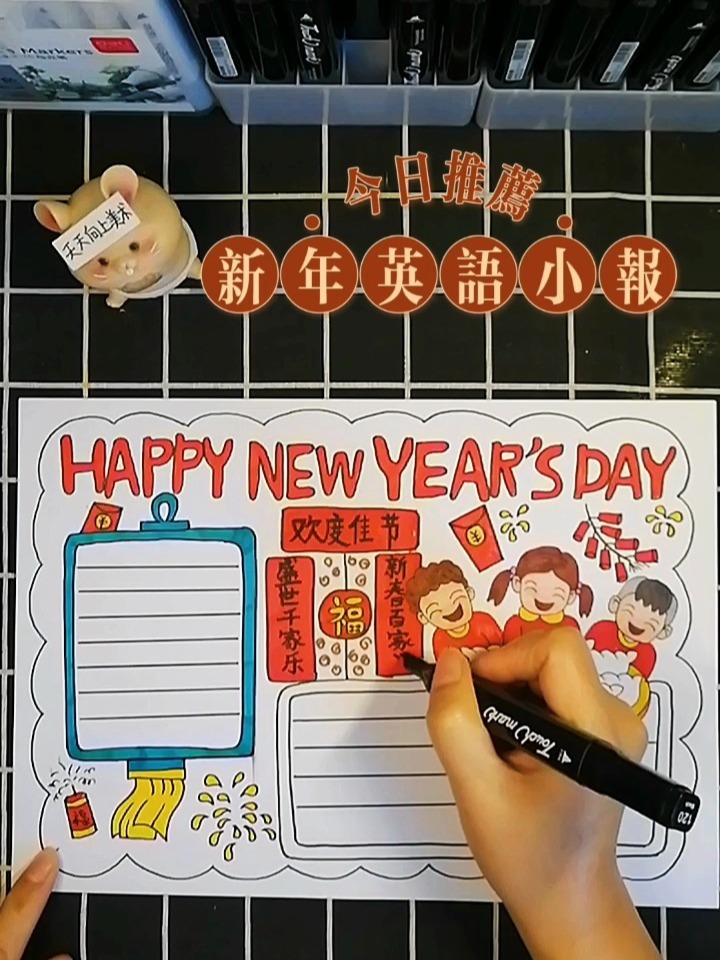 s Markers
Touch mark
天天向上美术
今日推薦
新年英語小報
HAPPY NEW YEAR'S DAY
欢度佳节
盛世千家乐
新春百家
福
福
Touch mark
120